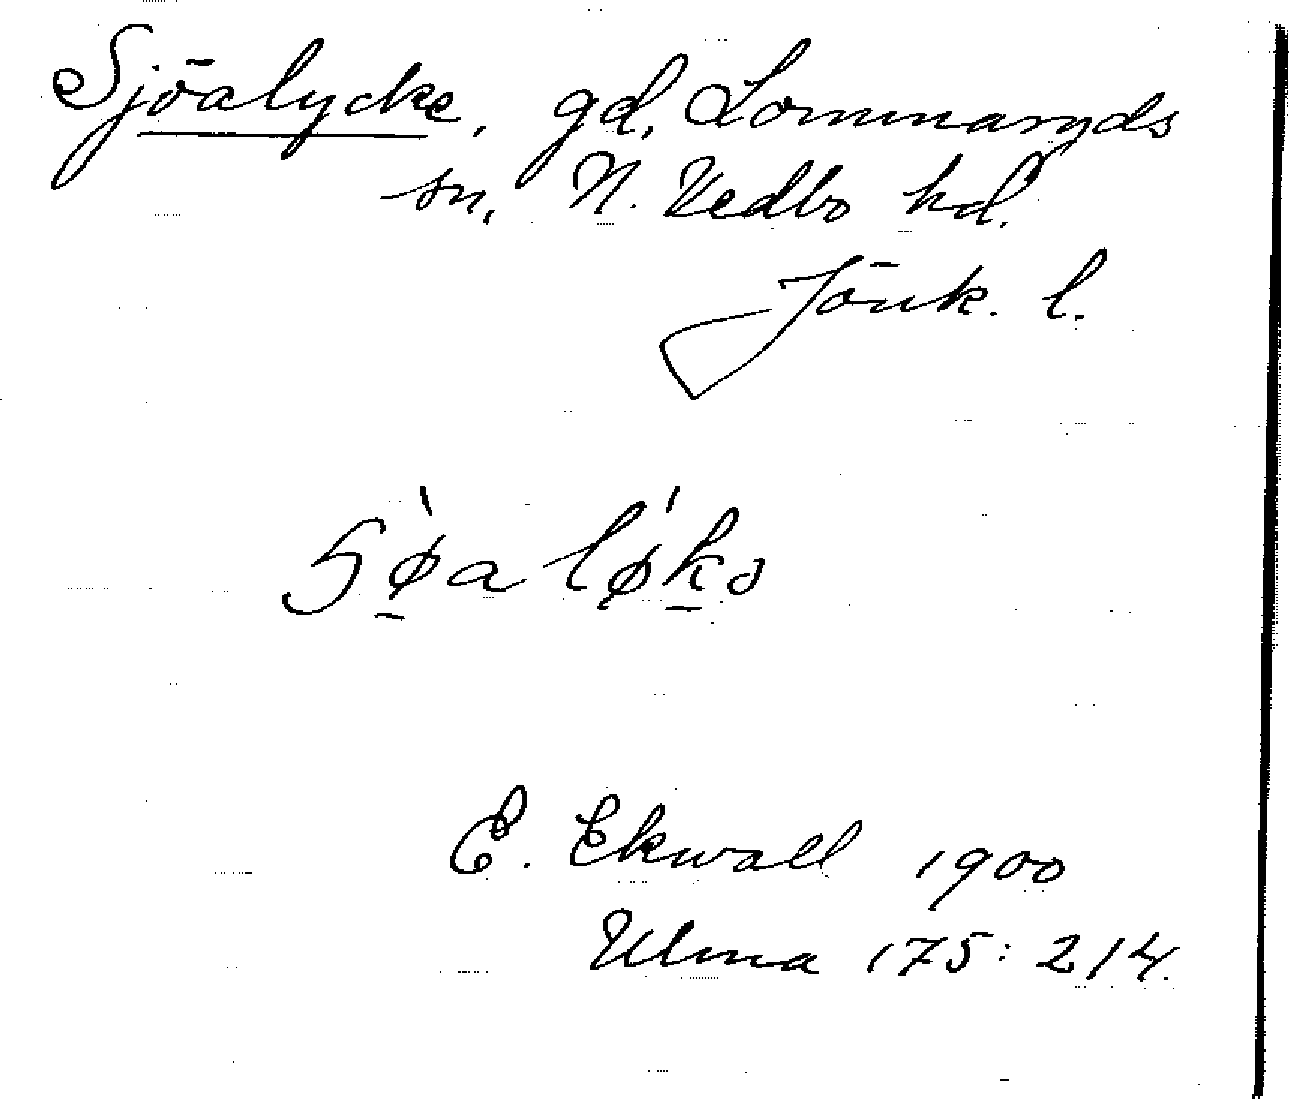 Sjöalycke, gd, Lommaryds
sn, N. Vedbo hd.
Jönk. l.
E. Ekwall 1900
Ulma 175:214.